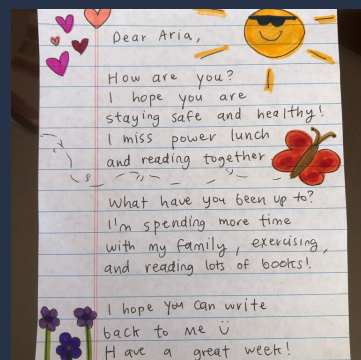 Dear Aria,
How are you?
I hope you are
staying safe and healthy!
I miss power lunch
and reading together
What have you been up to?
I'm spending more time
with my family, exercising,
and reading lots of books!
I hope you can write
back to me ü
Have a great week!